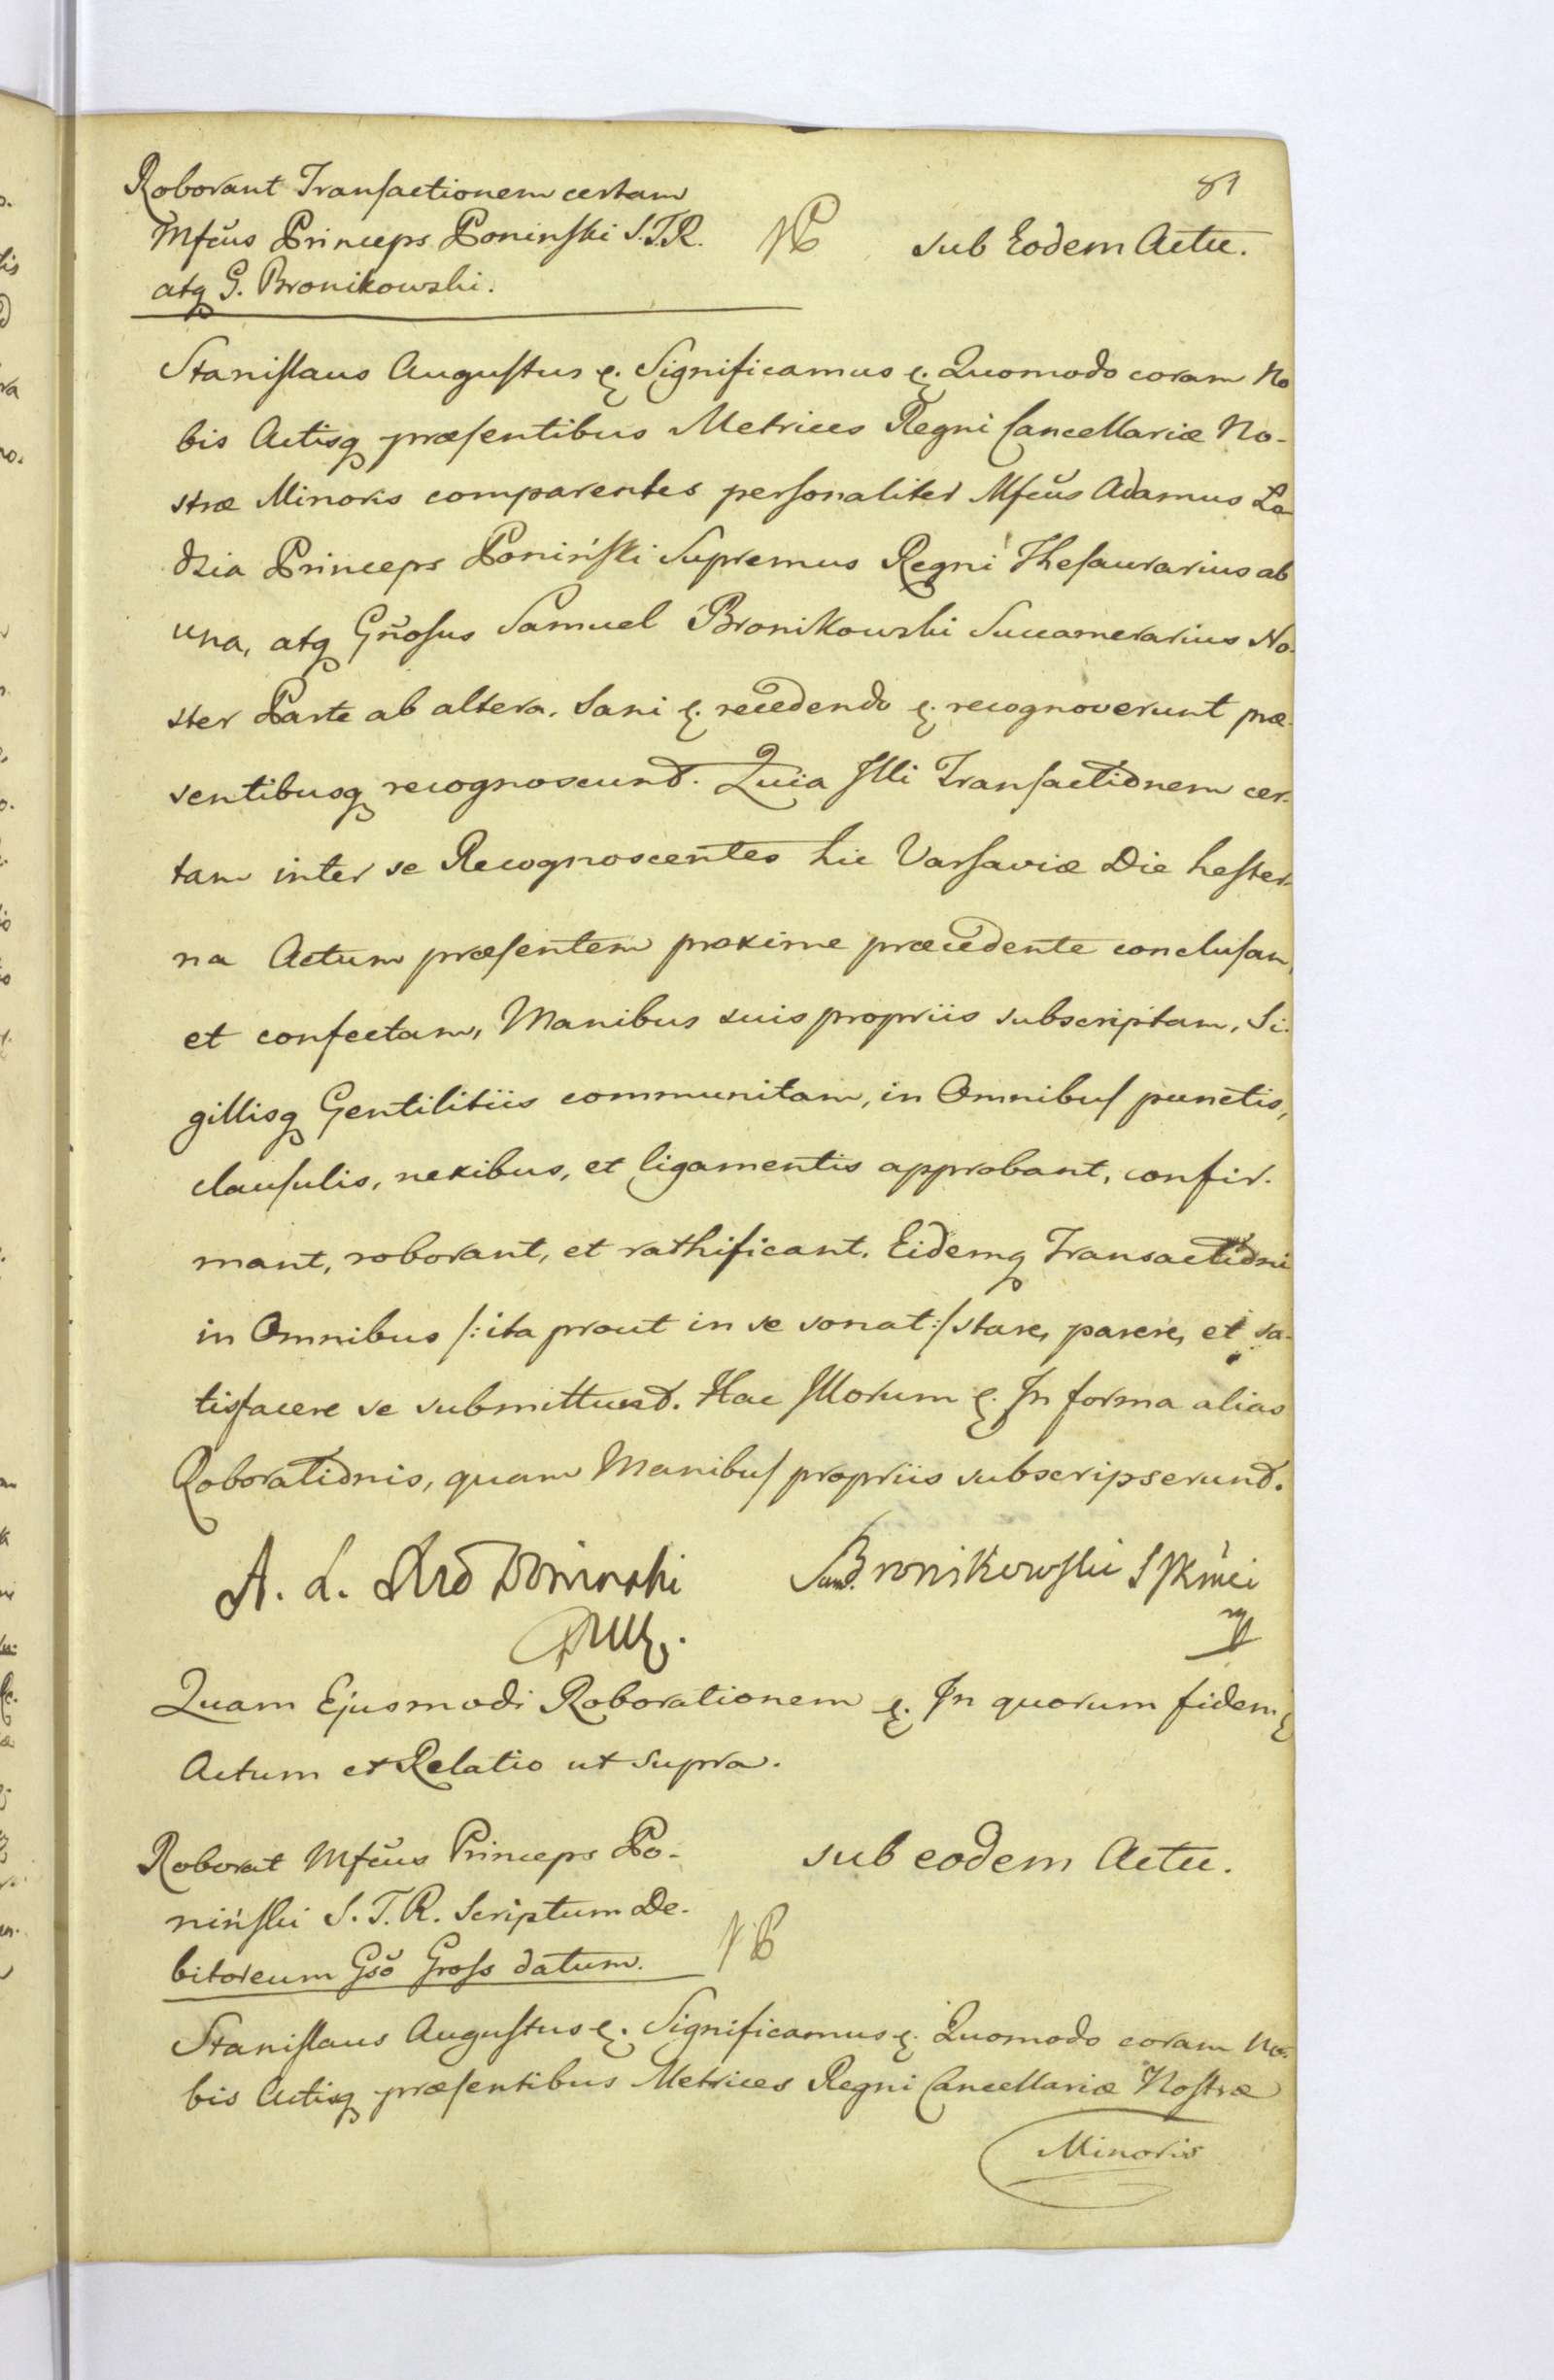 81
Roborant Transactionem certam
Mfcus Princeps Poninski S.T.R.
atq G. Bronikowski.
NB
sub Eodem Actu.
Stanislaus Augustus &. Significamus &. Quomodo coram No
bis Actisq præsentibus Metrices Regni Cancellariæ No-
stræ Minoris comparentes personaliter Mfcus Adamus Lo
dzia Princeps Poniński Supremus Regni Thesaurarius ab
una, atq Gnosus Samuel Bronikowski Succamerarius No-
ster Parte ab altera. Sani &. recedendo &. recognoverunt præ-
sentibusq recognoscunt. Quia Illi Transactionem cer-
tam inter se Recognoscentes hic Varsaviæ Die hester-
na Actum præsentem proxime præcedente conclusam,
et confectam, Manibus suis propriis subscriptam, Si-
gillisq Gentilitiis communitam, in Omnibus punctis,
clausulis, nexibus, et ligamentis approbant, confir-
mant, roborant, et rathificant. Eidemq Transactioni
in Omnibus /: ita prout in se sonat :/ stare, parere, et sa-
tisfacere se submittunt. Hac Illorum &. In forma alias
Roborationis, quam Manibus propriis subscripserunt.
A. L. Poninski
Sam. Bronikowski
Quam Ejusmodi Roborationem &. In quorum fidem &
Actum et Relatio ut supra.
Roborat Mfcus Princeps Po-
niński S.T.R. Scriptum De-
bitoreum Gso Gross datum.
NB
sub eodem Actu.
Stanislaus Augustus &. Significamus &. Quomodo coram No-
bis Actisq præsentibus Metrices Regni Cancellariæ Nostræ
Minoris